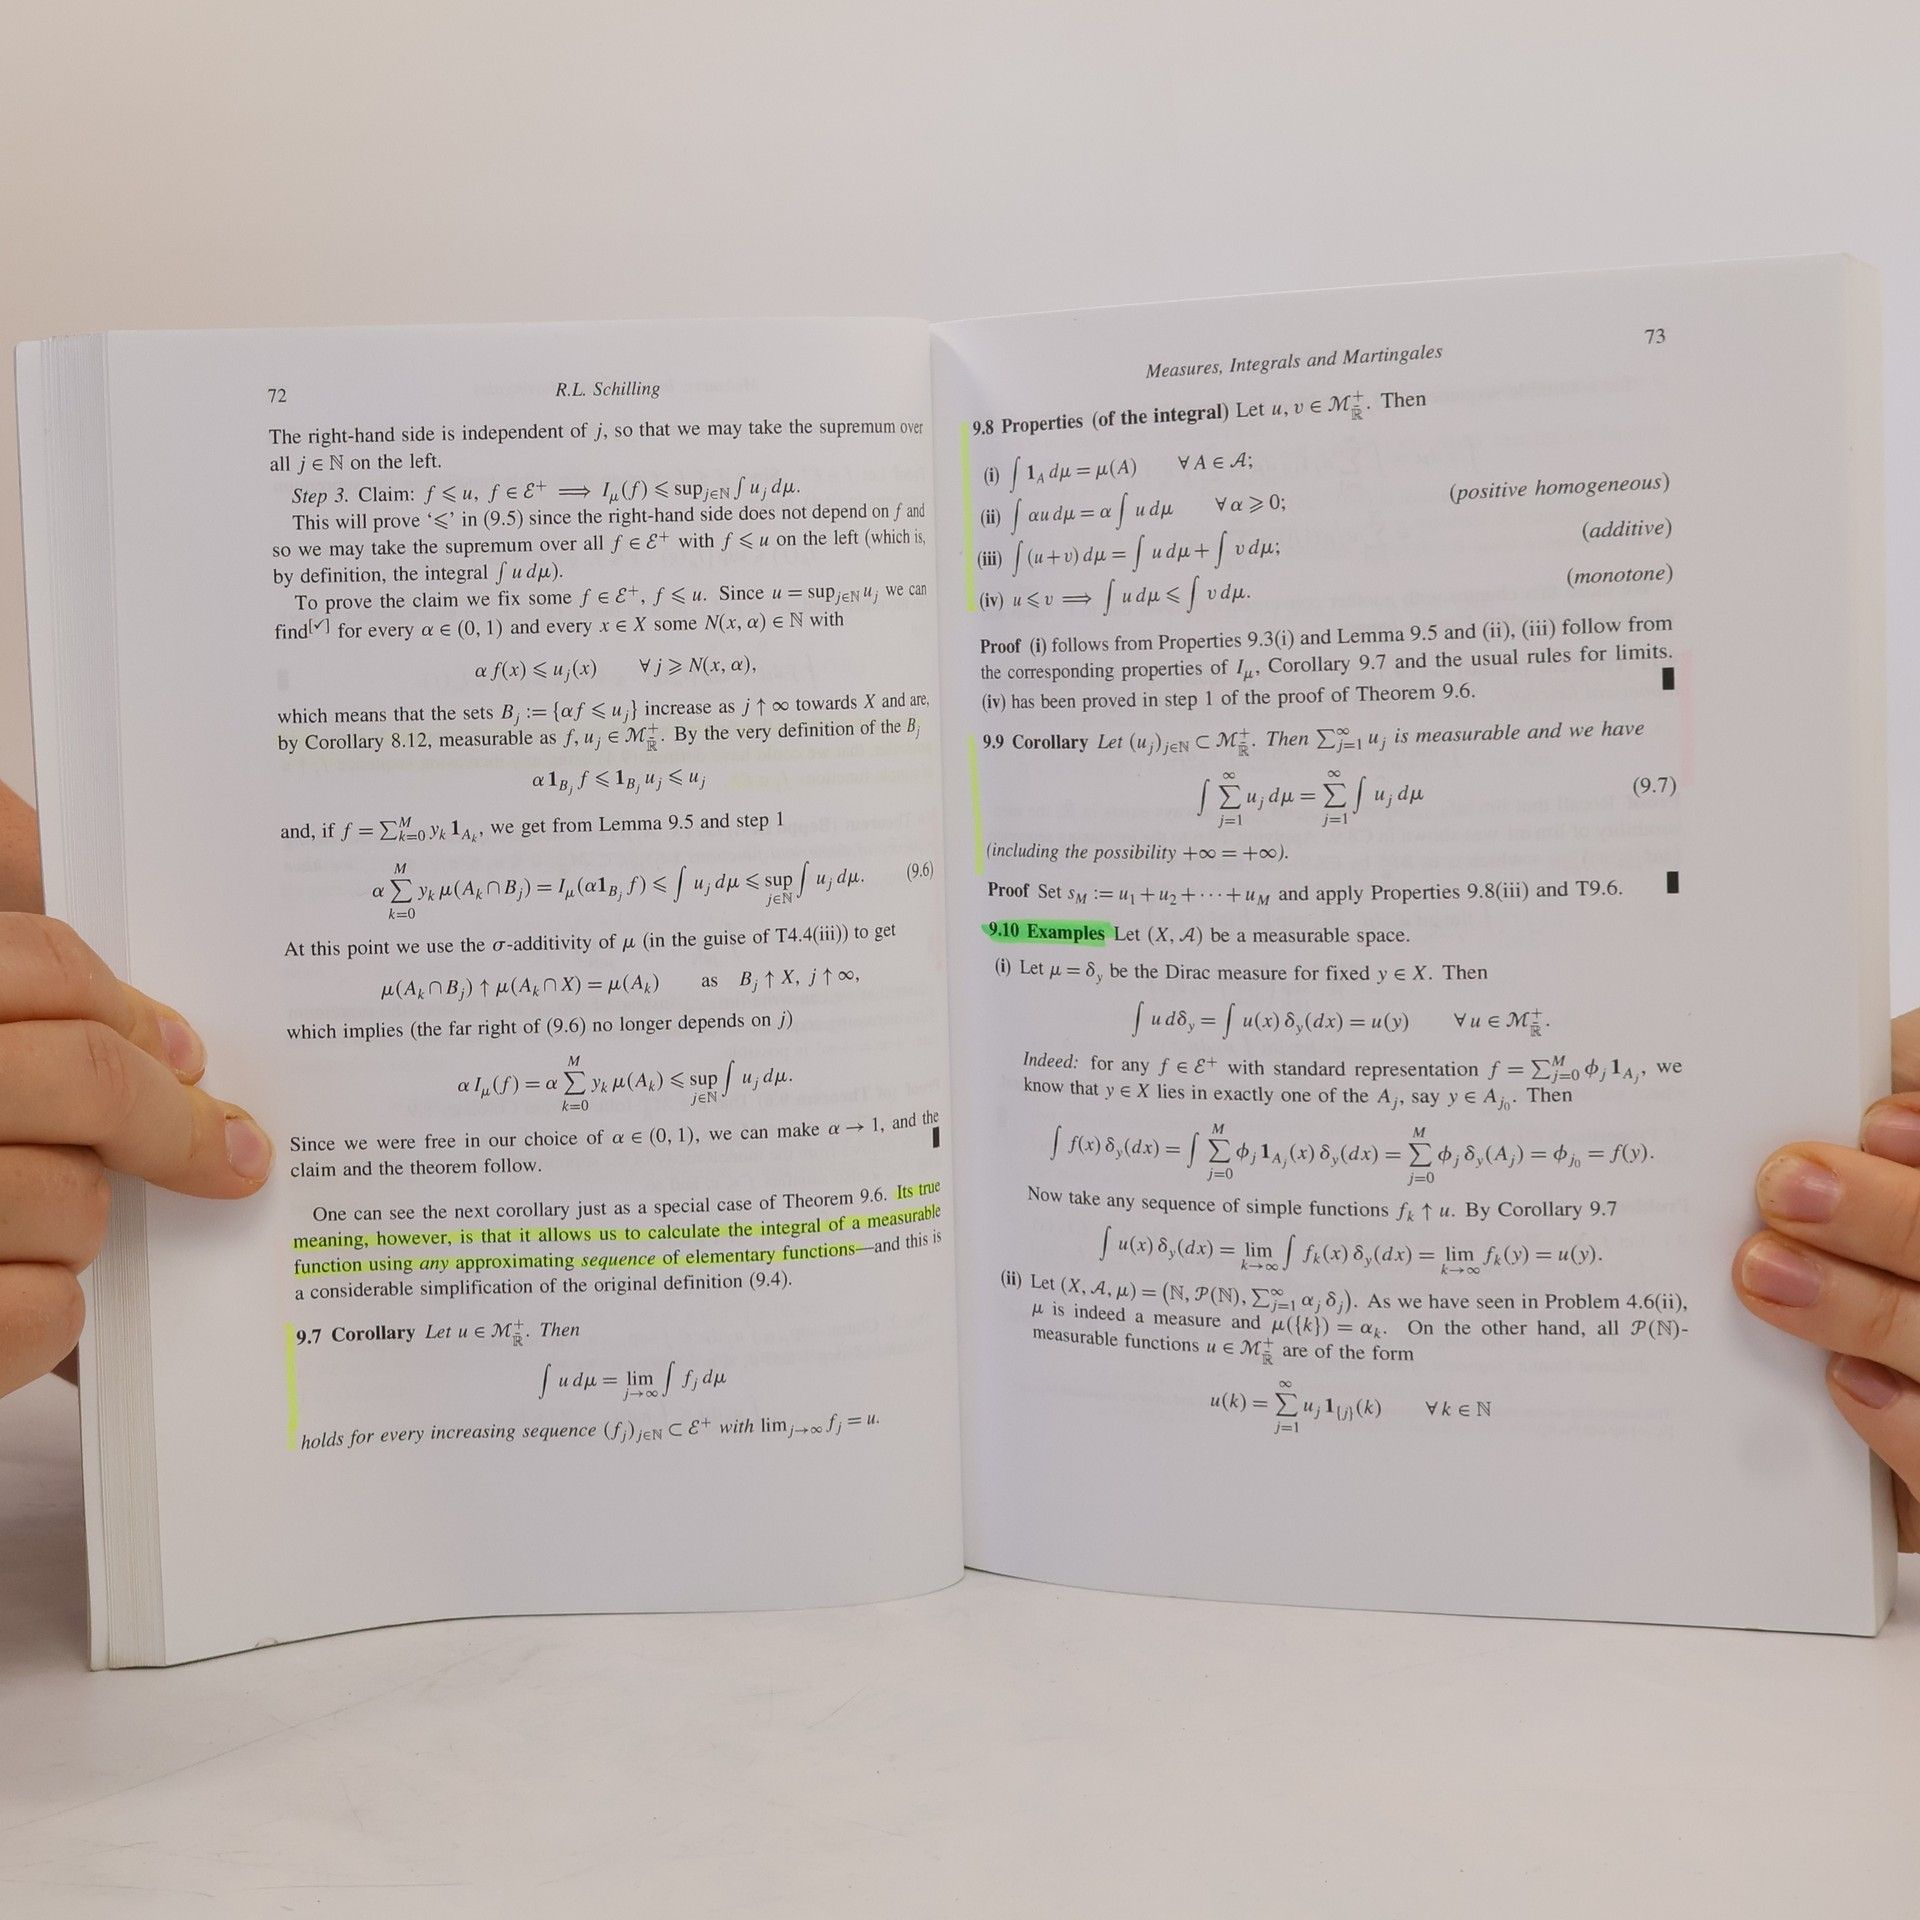 72
R.L. Schilling
The right-hand side is independent of j, so that we may take the supremum over
all j ∈ ℕ on the left.
Step 3. Claim: f ⩽ u, f ∈ ℰ⁺ ⟹ I_μ(f) ⩽ sup_{j∈ℕ} ∫ u_j dμ.
This will prove ‘⩽’ in (9.5) since the right-hand side does not depend on f and
so we may take the supremum over all f ∈ ℰ⁺ with f ⩽ u on the left (which is,
by definition, the integral ∫ u dμ).
To prove the claim we fix some f ∈ ℰ⁺, f ⩽ u. Since u = sup_{j∈ℕ} u_j we can
find[✓] for every α ∈ (0, 1) and every x ∈ X some N(x, α) ∈ ℕ with
α f(x) ⩽ u_j(x) ∀ j ⩾ N(x, α),
which means that the sets B_j := {αf ⩽ u_j} increase as j ↑ ∞ towards X and are,
by Corollary 8.12, measurable as f, u_j ∈ ℳ⁺_ℝ̄. By the very definition of the B_j
α1_{B_j} f ⩽ 1_{B_j} u_j ⩽ u_j
and, if f = ∑_{k=0}^M y_k 1_{A_k}, we get from Lemma 9.5 and step 1
α ∑_{k=0}^M y_k μ(A_k ∩ B_j) = I_μ(α1_{B_j} f) ⩽ ∫ u_j dμ ⩽ sup_{j∈ℕ} ∫ u_j dμ. (9.6)
At this point we use the σ-additivity of μ (in the guise of T4.4(iii)) to get
μ(A_k ∩ B_j) ↑ μ(A_k ∩ X) = μ(A_k) as B_j ↑ X, j ↑ ∞,
which implies (the far right of (9.6) no longer depends on j)
α I_μ(f) = α ∑_{k=0}^M y_k μ(A_k) ⩽ sup_{j∈ℕ} ∫ u_j dμ.
Since we were free in our choice of α ∈ (0, 1), we can make α → 1, and the
claim and the theorem follow. ▮
One can see the next corollary just as a special case of Theorem 9.6. Its true
meaning, however, is that it allows us to calculate the integral of a measurable
function using any approximating sequence of elementary functions—and this is
a considerable simplification of the original definition (9.4).
9.7 Corollary Let u ∈ ℳ⁺_ℝ̄. Then
∫ u dμ = lim_{j→∞} ∫ f_j dμ
holds for every increasing sequence (f_j)_{j∈ℕ} ⊂ ℰ⁺ with lim_{j→∞} f_j = u.
Measures, Integrals and Martingales
73
9.8 Properties (of the integral) Let u, v ∈ ℳ⁺_ℝ̄. Then
(i) ∫ 1_A dμ = μ(A) ∀ A ∈ 𝒜;
(ii) ∫ αu dμ = α ∫ u dμ ∀ α ⩾ 0; (positive homogeneous)
(iii) ∫ (u + v) dμ = ∫ u dμ + ∫ v dμ; (additive)
(iv) u ⩽ v ⟹ ∫ u dμ ⩽ ∫ v dμ. (monotone)
Proof (i) follows from Properties 9.3(i) and Lemma 9.5 and (ii), (iii) follow from
the corresponding properties of I_μ, Corollary 9.7 and the usual rules for limits.
(iv) has been proved in step 1 of the proof of Theorem 9.6. ▮
9.9 Corollary Let (u_j)_{j∈ℕ} ⊂ ℳ⁺_ℝ̄. Then ∑_{j=1}^∞ u_j is measurable and we have
∫ ∑_{j=1}^∞ u_j dμ = ∑_{j=1}^∞ ∫ u_j dμ (9.7)
(including the possibility +∞ = +∞).
Proof Set s_M := u_1 + u_2 + ··· + u_M and apply Properties 9.8(iii) and T9.6. ▮
9.10 Examples Let (X, 𝒜) be a measurable space.
(i) Let μ = δ_y be the Dirac measure for fixed y ∈ X. Then
∫ u dδ_y = ∫ u(x) δ_y(dx) = u(y) ∀ u ∈ ℳ⁺_ℝ̄.
Indeed: for any f ∈ ℰ⁺ with standard representation f = ∑_{j=0}^M ϕ_j 1_{A_j}, we
know that y ∈ X lies in exactly one of the A_j, say y ∈ A_{j_0}. Then
∫ f(x) δ_y(dx) = ∫ ∑_{j=0}^M ϕ_j 1_{A_j}(x) δ_y(dx) = ∑_{j=0}^M ϕ_j δ_y(A_j) = ϕ_{j_0} = f(y).
Now take any sequence of simple functions f_k ↑ u. By Corollary 9.7
∫ u(x) δ_y(dx) = lim_{k→∞} ∫ f_k(x) δ_y(dx) = lim_{k→∞} f_k(y) = u(y).
(ii) Let (X, 𝒜, μ) = (ℕ, 𝒫(ℕ), ∑_{j=1}^∞ α_j δ_j). As we have seen in Problem 4.6(ii),
μ is indeed a measure and μ({k}) = α_k. On the other hand, all 𝒫(ℕ)-
measurable functions u ∈ ℳ⁺_ℝ̄ are of the form
u(k) = ∑_{j=1}^∞ u_j 1_{{j}}(k) ∀ k ∈ ℕ